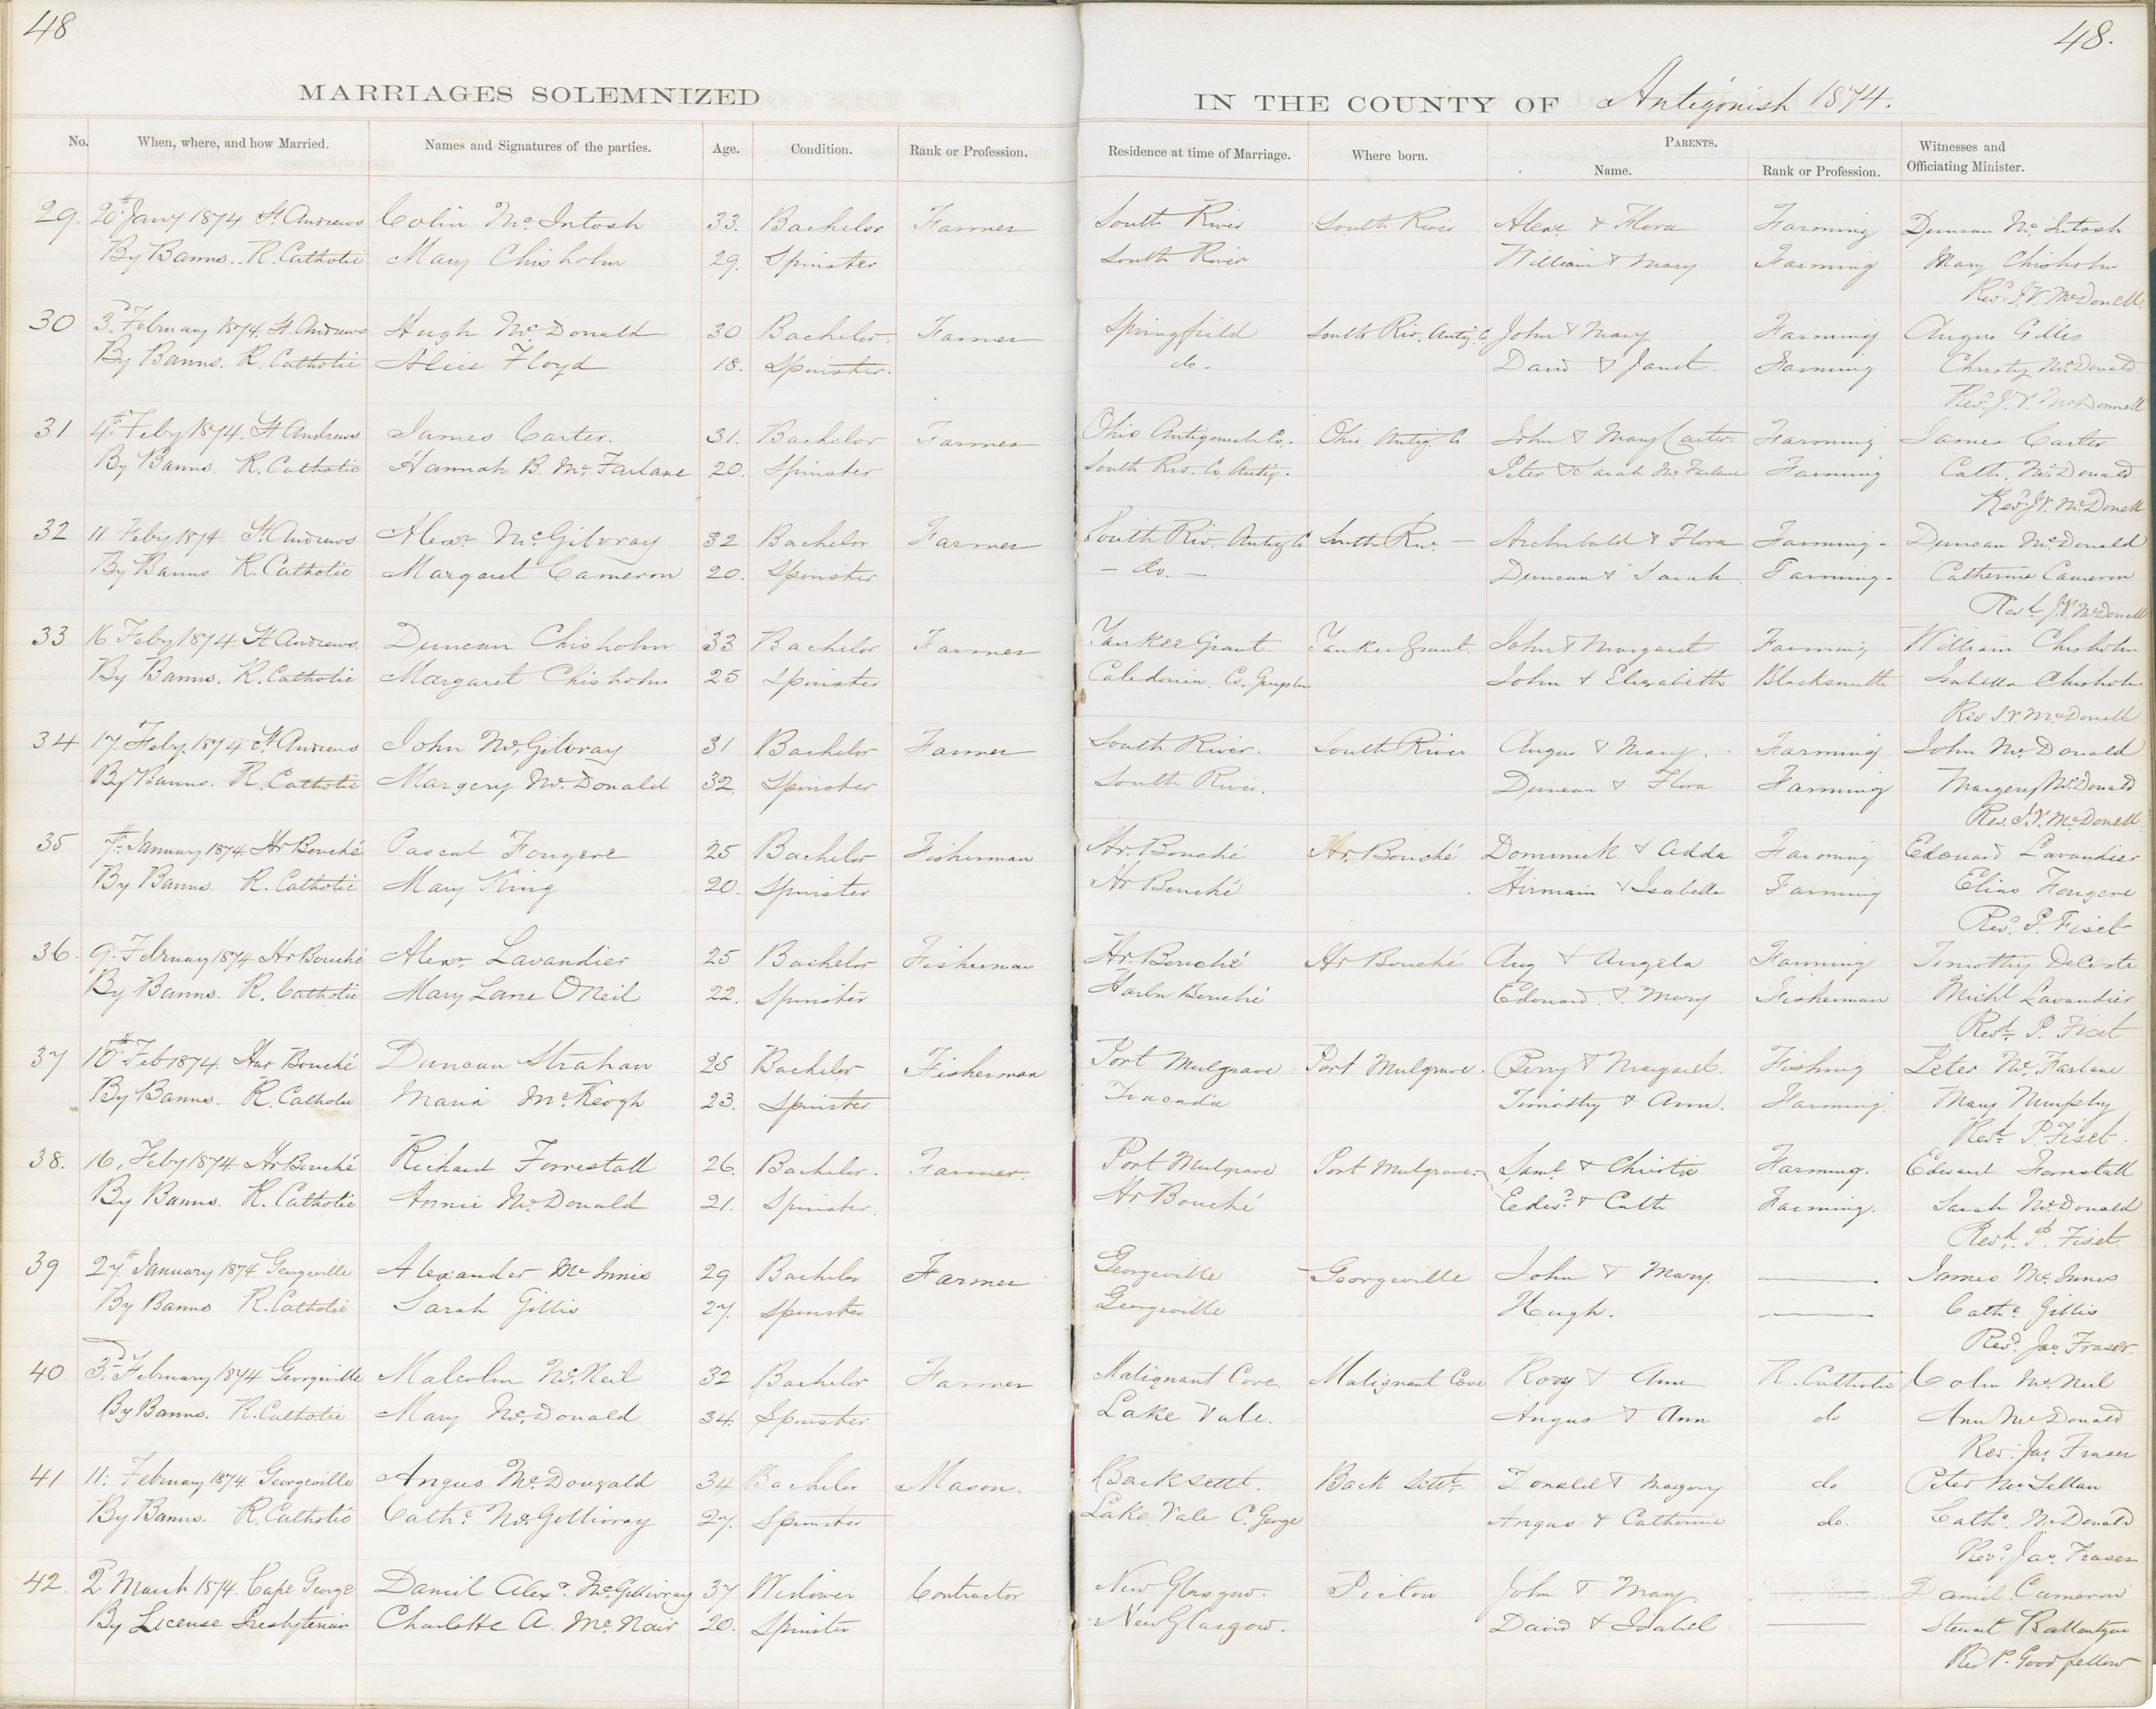 48
48.
MARRIAGES SOLEMNIZED
IN THE COUNTY OF Antigonish 1874.
No. When, where, and how Married. Names and Signatures of the parties. Age. Condition. Rank or Profession. Residence at time of Marriage. Where born. PARENTS. Name. Rank or Profession. Witnesses and Officiating Minister.
29. 20th Jany 1874 St Andrews Colin Mc Intosh 33. Bachelor Farmer South River South River Alexr & Flora Farming Duncan Mc Intosh
By Banns. R. Catholic Mary Chisholm 29. Spinster South River William & Mary Farming Mary Chisholm
Revd J. V. McDonell
30 3d February 1874. St Andrews Hugh Mc Donald 30 Bachelor. Farmer Springfield South Riv. Antig. Co John & Mary Farming Angus Gillis
By Banns. R. Catholic Alice Floyd 18. Spinster. do. David & Janet. Farming Christy McDonald
Rev. J. V. McDonnell
31 4th Feby 1874. St Andrews James Carter. 31. Bachelor Farmer Ohio Antigonish Co. Ohio Antig. Co John & Mary Carter Farming James Carter
By Banns. R. Catholic Hannah B. Mc Farlane 20. Spinster South Riv. Co. Antig. Peter & Sarah Mc Farlane Farming Cath. McDonald
Revd J. V. McDonell
32 11 Feby 1874 St Andrews Alexr McGilvray 32 Bachelor Farmer South Riv. Antig Co South Riv. — Archibald & Flora Farming - Duncan McDonald
By Banns R. Catholic Margaret Cameron 20. Spinster — do. — Duncan & Sarah Farming - Catherine Cameron
Revd J. V. McDonell
33 16 Feby 1874. St Andrews. Duncan Chisholm 33 Bachelor Farmer Yankee Grant. Yankee Grant. John & Margaret Farming William Chisholm
By Banns. R. Catholic Margaret Chisholm 25 Spinster Caledonia Co. John & Elizabeth Blacksmith Isabella Chisholm
Rev J. V. McDonell
34 17. Feby. 1874 St Andrews John McGilvray 31 Bachelor Farmer South River. South River Angus & Mary. Farming John Mc Donald
By Banns. R. Catholic Margery Mc Donald 32. Spinster South River. Duncan & Flora Farming Margery McDonald
Rev. J. V. McDonell
35 7th January 1874. Hr Bouché Pascal Fougere 25 Bachelor Fisherman Hr. Bouché Hr. Bouché Dominick & Adda Farming Edouard Lavandier
By Banns. R. Catholic Mary King 20. Spinster Hr Bouché Hirmain & Isabella Farming Elias Fougere
Revd. P. Fiset
36. 9. February 1874 Hr Bouché Alexr Lavandier 25 Bachelor Fisherman Hr. Bouché Hr Bouché Aug & Angela Farming Timothy DeCoste
By Banns. R. Catholic Mary Lane O'Neil 22. Spinster Harbr Bouché Edouard & Mary Fisherman Michl Lavandier
Revd. P. Fiset
37 10th Feb 1874. Har Bouché Duncan Strahan 25 Bachelor Fisherman Port Mulgrave Port Mulgrave. Perry & Margaret. Fishing Peter Mc Farlane
By Banns. R. Catholic Maria Mc Keogh 23. Spinster Tracadie Timothy & Ann. Farming. Mary Murphy
Revd. P. Fiset.
38. 16, Feby 1874 Hr Bouché Richard Forrestall 26. Bachelor. Farmer. Port Mulgrave Port Mulgrave. Saml & Christie Farming. Edward Forrestall
By Banns. R. Catholic Annie Mc Donald 21. Spinster. Hr Bouché Edwd & Cath Farming. Sarah McDonald
Revd. P. Fiset
39 27th January 1874 Georgeville Alexander Mc Innis 29 Bachelor Farmer Georgeville Georgeville John & Mary. —— James Mc Innes
By Banns R. Catholic Sarah Gillis 27. Spinster Georgeville Hough. —— Cathe Gillis
Revd. Jas. Fraser.
40 3rd February 1874 Georgeville Malcolm Mc Neil 32 Bachelor Farmer Malignant Cove Malignant Cove Rory & Ann R. Catholic Colin Mc Neil
By Banns. R. Catholic Mary Mc Donald 34. Spinster Lake Vale. Angus & Ann do Ann McDonald
Rev. Jas Fraser
41 11. February 1874 Georgeville Angus McDougald 34 Bachelor Mason. Back Settt. Back Settt. Donald & Margery do Peter McLellan
By Banns. R. Catholic Cathe McGillivray 27. Spinster Lake Vale C. George Angus & Catherine do. Cathe. McDonald
Revd. Jas. Fraser
42. 2 March 1874. Cape George Daniel Alexr. McGillivray 37 Widower Contractor New Glasgow. Pictou John & Mary —— Daniel Cameron
By License Presbyterian Charlotte A. Mc Nair 20. Spinster New Glasgow. David & Isabel —— Stewart Ballantyne
Rev P. Goodfellow